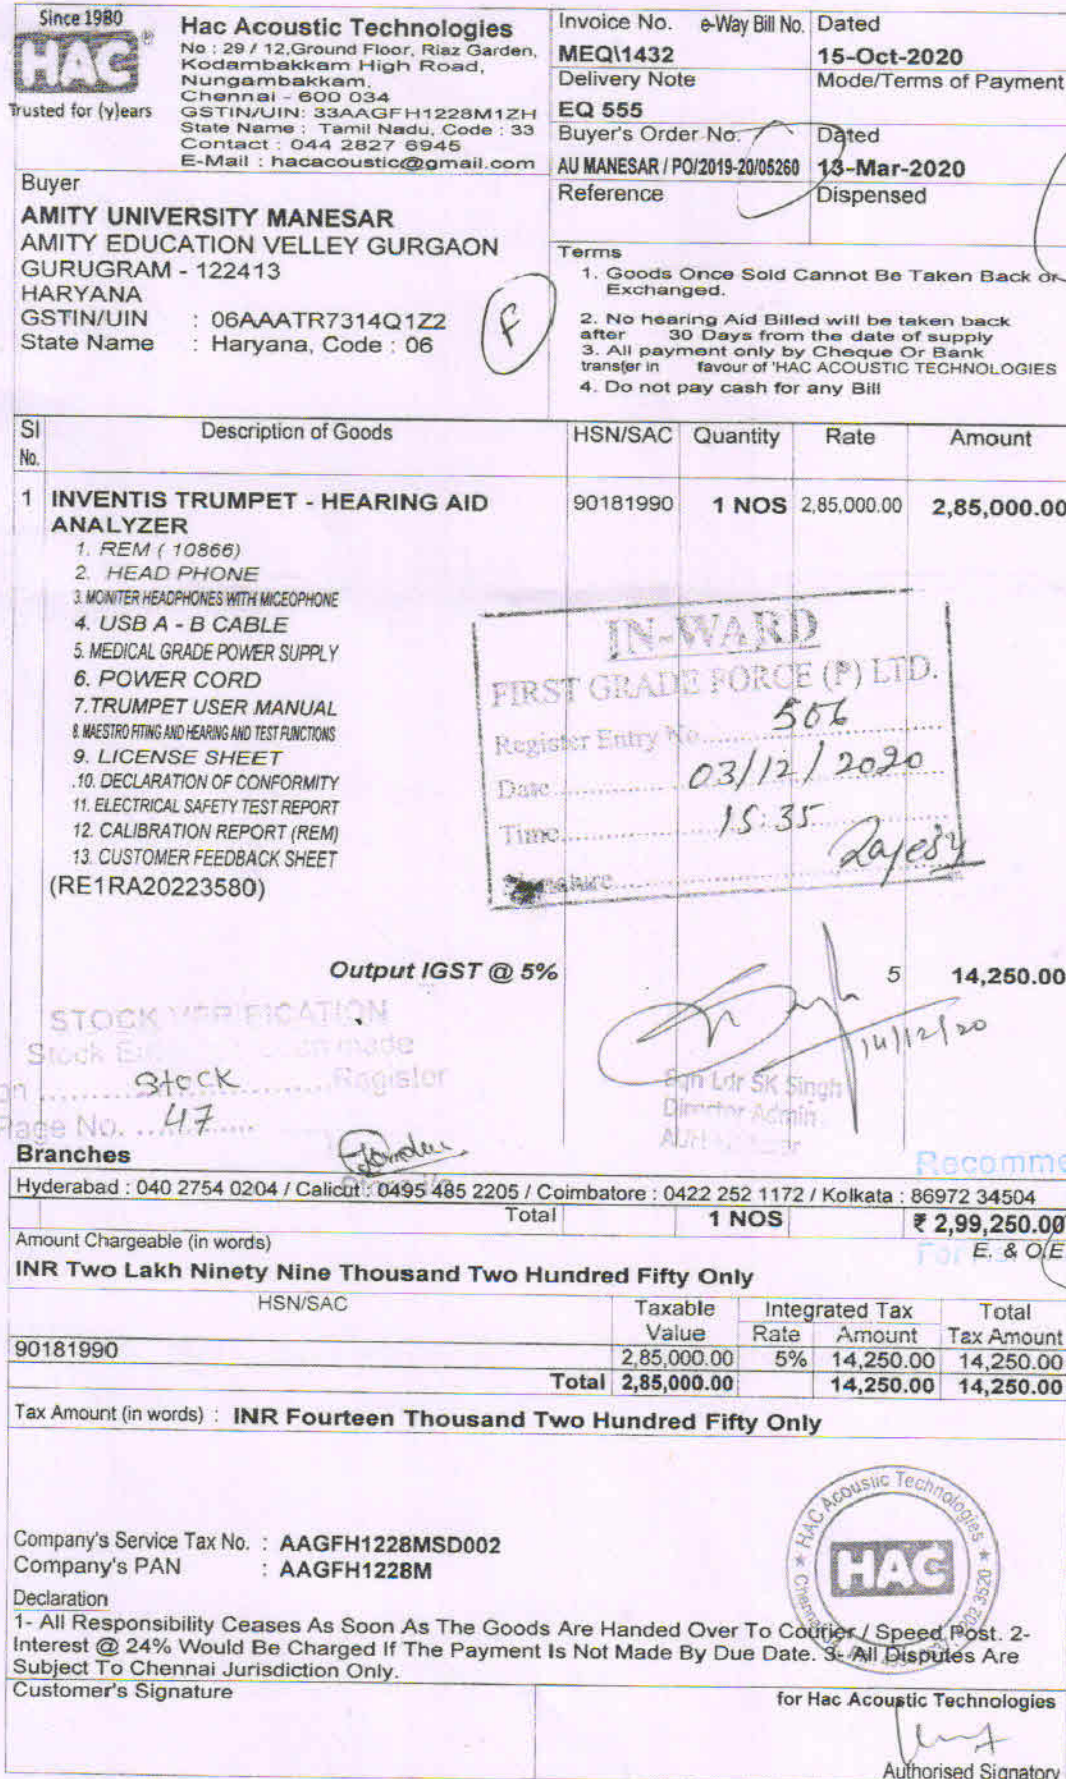 Since 1980
HAC®
Trusted for (y)ears
Hac Acoustic Technologies
No : 29 / 12,Ground Floor, Riaz Garden,
Kodambakkam High Road,
Nungambakkam,
Chennai - 600 034
GSTIN/UIN: 33AAGFH1228M1ZH
State Name : Tamil Nadu, Code : 33
Contact : 044 2827 6945
E-Mail : hacacoustic@gmail.com
Invoice No. e-Way Bill No. Dated
MEQ\1432 15-Oct-2020
Delivery Note Mode/Terms of Payment
EQ 555
Buyer's Order No. Dated
AU MANESAR / PO/2019-20/05260 13-Mar-2020
Reference Dispensed
Buyer
AMITY UNIVERSITY MANESAR
AMITY EDUCATION VELLEY GURGAON
GURUGRAM - 122413
HARYANA
GSTIN/UIN : 06AAATR7314Q1Z2
State Name : Haryana, Code : 06
F
Terms
1. Goods Once Sold Cannot Be Taken Back or
Exchanged.
2. No hearing Aid Billed will be taken back
after 30 Days from the date of supply
3. All payment only by Cheque Or Bank
transfer in favour of 'HAC ACOUSTIC TECHNOLOGIES
4. Do not pay cash for any Bill
Sl No. Description of Goods HSN/SAC Quantity Rate Amount
1 INVENTIS TRUMPET - HEARING AID 90181990 1 NOS 2,85,000.00 2,85,000.00
ANALYZER
1. REM ( 10866)
2. HEAD PHONE
3. MONITER HEADPHONES WITH MICEOPHONE
4. USB A - B CABLE
5. MEDICAL GRADE POWER SUPPLY
6. POWER CORD
7.TRUMPET USER MANUAL
8. MAESTRO FITING AND HEARING AND TEST FUNCTIONS
9. LICENSE SHEET
.10. DECLARATION OF CONFORMITY
11. ELECTRICAL SAFETY TEST REPORT
12. CALIBRATION REPORT (REM)
13. CUSTOMER FEEDBACK SHEET
(RE1RA20223580)
IN-WARD
FIRST GRADE FORCE (P) LTD.
Register Entry No. 506
Date 03/12/2020
Time 15:35
Signature Rajesh
Output IGST @ 5% 5 14,250.00
14/12/20
Sqn Ldr SK Singh
Director Admin
STOCK VERIFICATION
Stock made
on Stock Register
Page No. 47
Branches
Recomme
Hyderabad : 040 2754 0204 / Calicut : 0495 485 2205 / Coimbatore : 0422 252 1172 / Kolkata : 86972 34504
Total 1 NOS ₹ 2,99,250.00
Amount Chargeable (in words) E. & O.E
For
INR Two Lakh Ninety Nine Thousand Two Hundred Fifty Only
HSN/SAC Taxable Integrated Tax Total
Value Rate Amount Tax Amount
90181990 2,85,000.00 5% 14,250.00 14,250.00
Total 2,85,000.00 14,250.00 14,250.00
Tax Amount (in words) : INR Fourteen Thousand Two Hundred Fifty Only
HAC Acoustic Technologies
HAC
Company's Service Tax No. : AAGFH1228MSD002
Company's PAN : AAGFH1228M
Declaration
1- All Responsibility Ceases As Soon As The Goods Are Handed Over To Courier / Speed Post. 2-
Interest @ 24% Would Be Charged If The Payment Is Not Made By Due Date. 3- All Disputes Are
Subject To Chennai Jurisdiction Only.
Customer's Signature for Hac Acoustic Technologies
Authorised Signatory